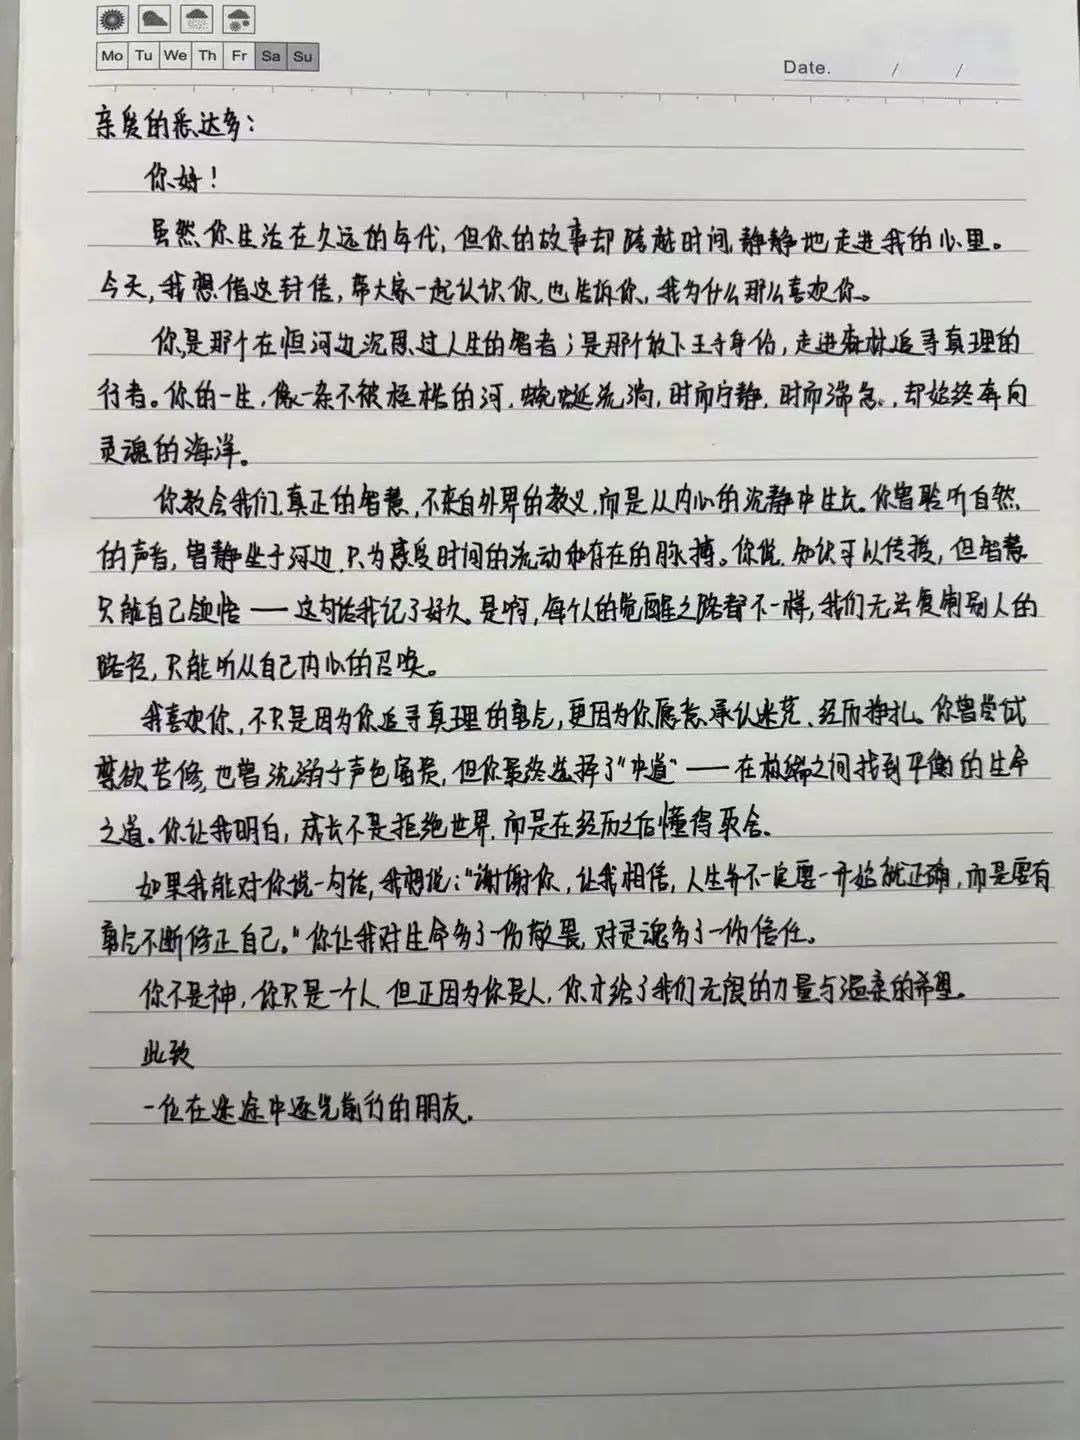 Mo Tu We Th Fr Sa Su
Date. / /
亲爱的悉达多：
你好！
虽然你生活在久远的年代，但你的故事却跨越时间，静静地走进我的心里。
今天，我想借这封信，带大家一起认识你，也告诉你，我为什么那么喜欢你。
你是那个在恒河边沉思过人生的智者；是那个放下王子身份，走进森林追寻真理的
行者。你的一生，像一条不被桎梏的河，蜿蜒流淌，时而宁静，时而湍急，却始终奔向
灵魂的海洋。
你教会我们，真正的智慧，不来自外界的教义，而是从内心的沉静中生长。你曾聆听自然
的声音，曾静坐于河边，只为感受时间的流动和存在的脉搏。你说，知识可以传授，但智慧
只能自己领悟——这句话我记了好久。是啊，每个人的觉醒之路都不一样，我们无法复制别人的
路径，只能听从自己内心的召唤。
我喜欢你，不只是因为你追寻真理的勇气，更因为你愿意承认迷茫、经历挣扎。你曾尝试
禁欲苦修，也曾沉溺于声色富贵，但你最终选择了“中道”——在极端之间找到平衡的生命
之道。你让我明白，成长不是拒绝世界，而是在经历之后懂得取舍。
如果我能对你说一句话，我想说：“谢谢你，让我相信，人生并不一定要一开始就正确，而是要有
勇气不断修正自己。”你让我对生命多了一份敬畏，对灵魂多了一份信任。
你不是神，你只是一个人，但正因为你是人，你才给了我们无限的力量与温柔的希望。
此致
一位在迷途中逐光前行的朋友.